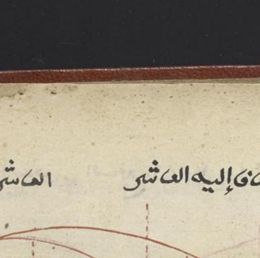 إليه العاشر العاشر